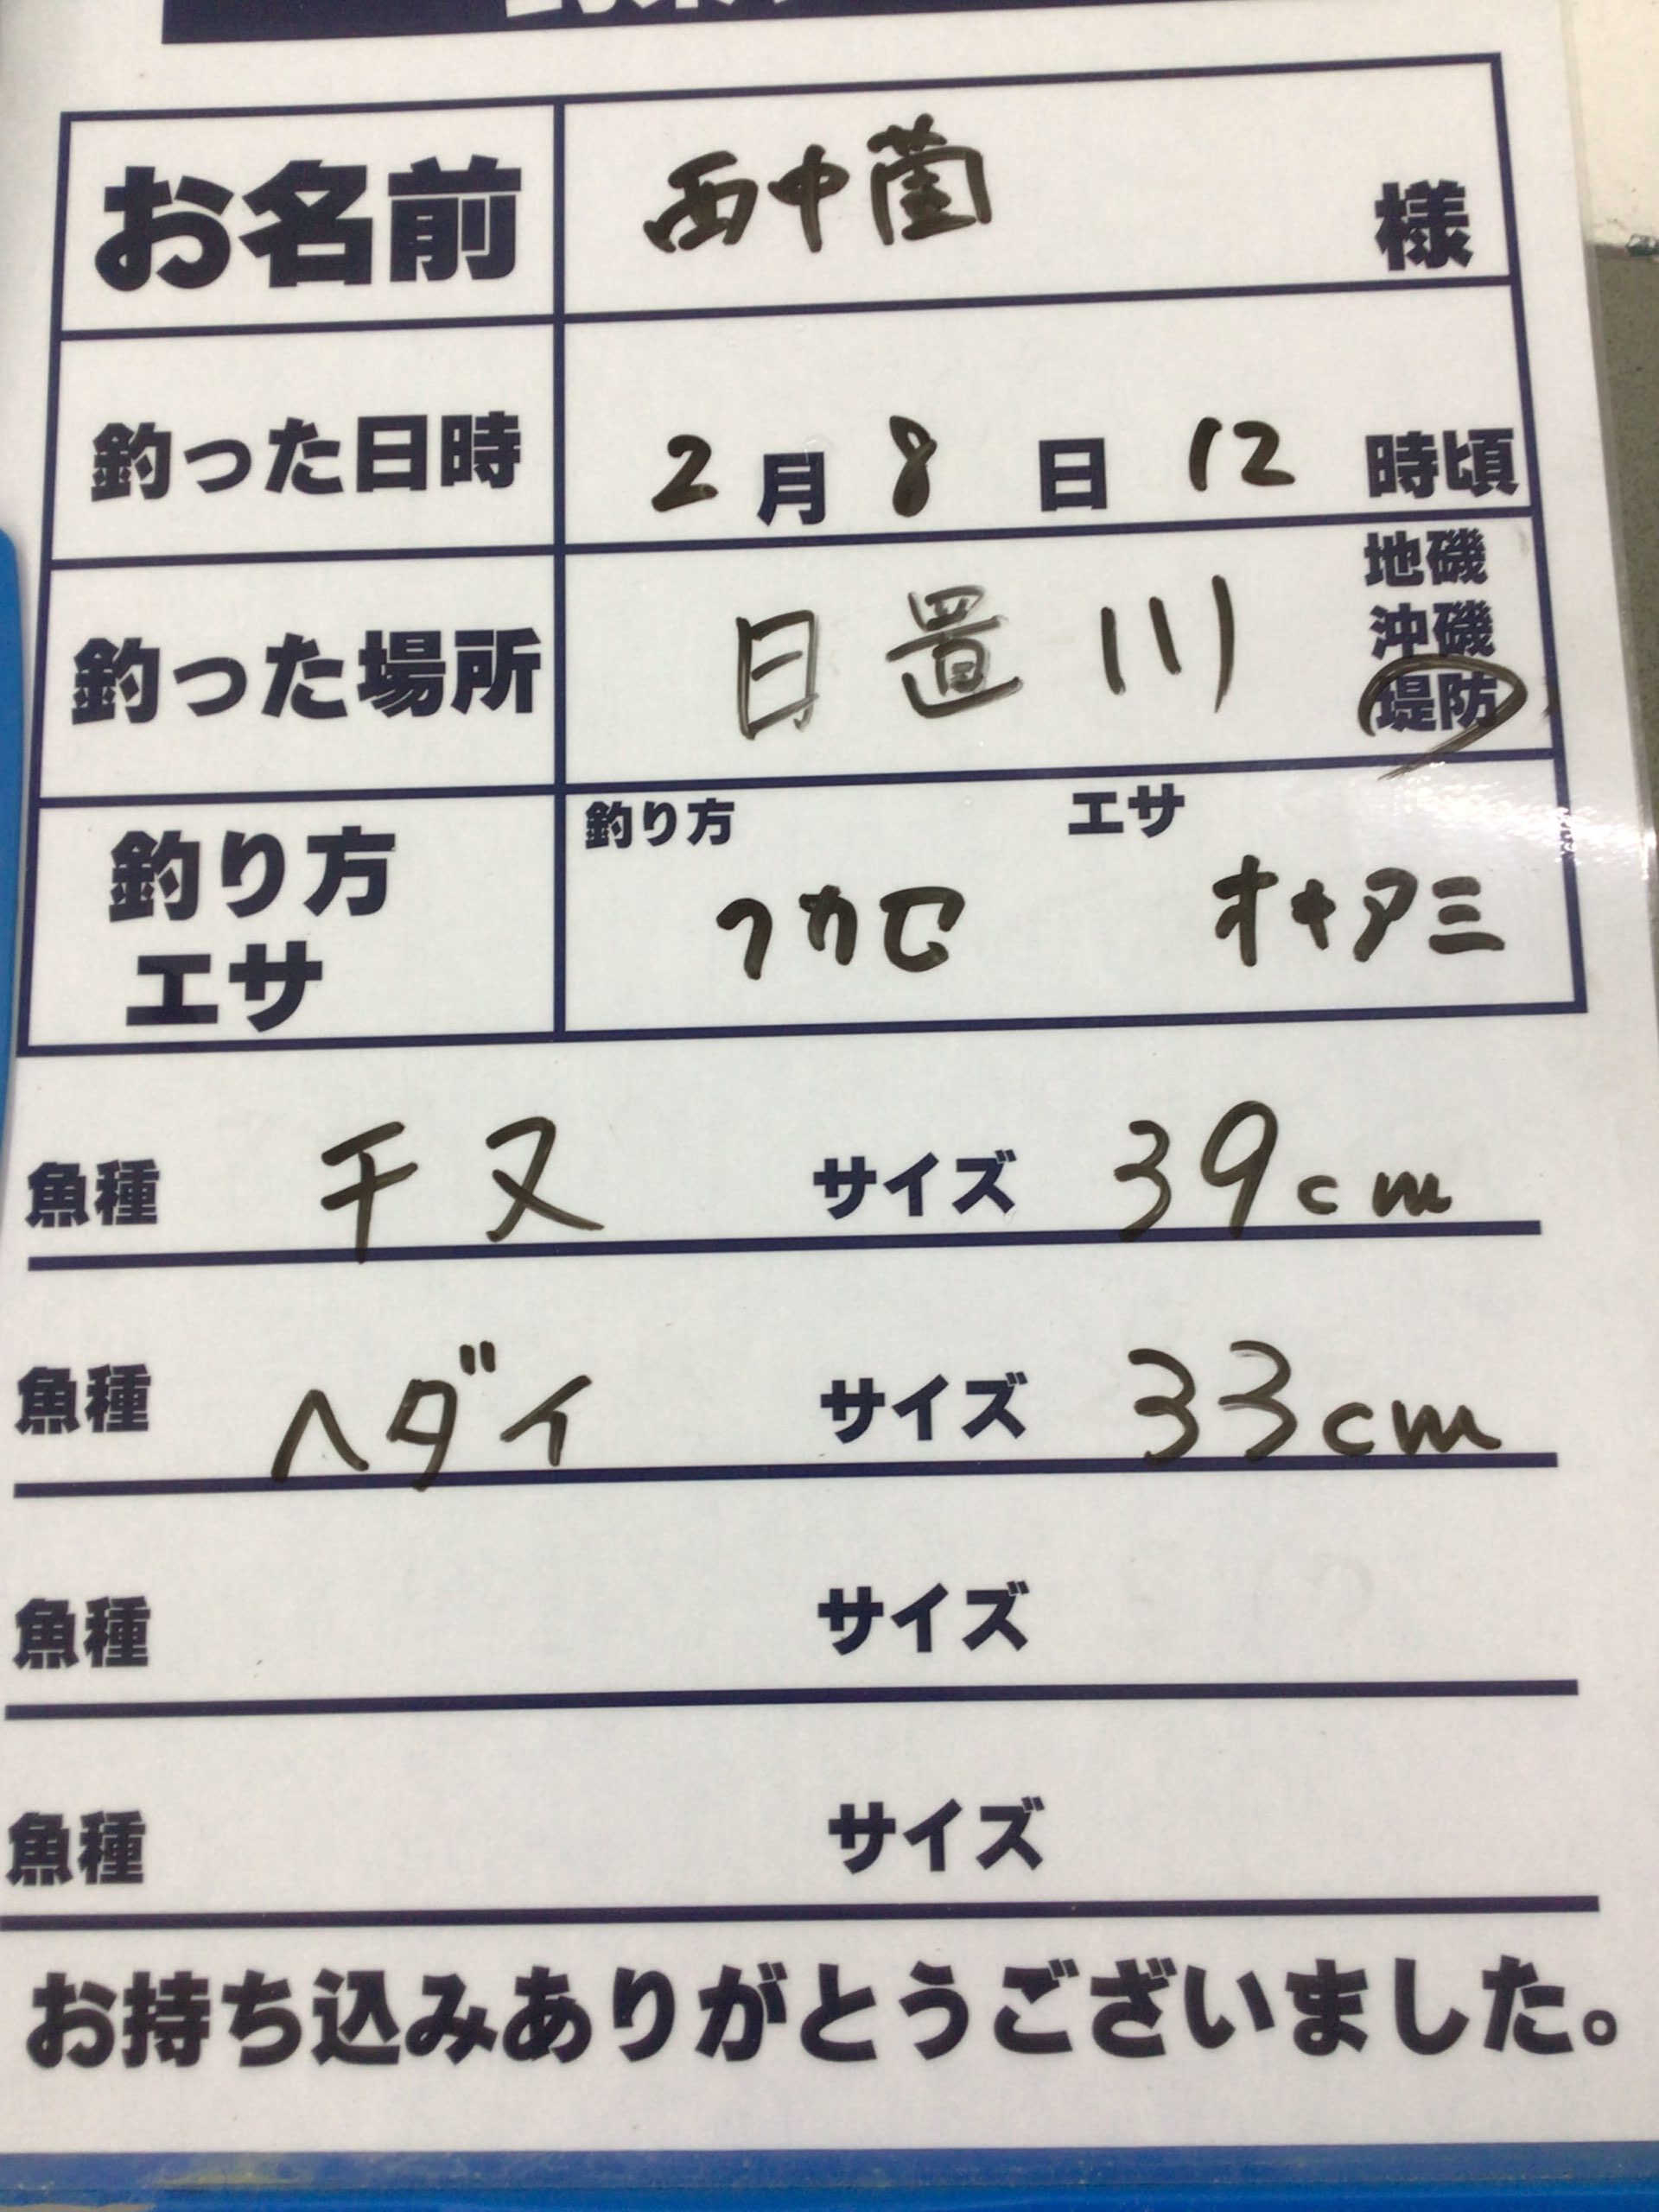 お名前 西中薗 様
釣った日時 2月8日12時頃
釣った場所 日置川 地磯 沖磯 堤防
釣り方 エサ 釣り方 フカセ エサ オキアミ
魚種 チヌ サイズ 39cm
魚種 ヘダイ サイズ 33cm
魚種 サイズ
魚種 サイズ
お持ち込みありがとうございました。